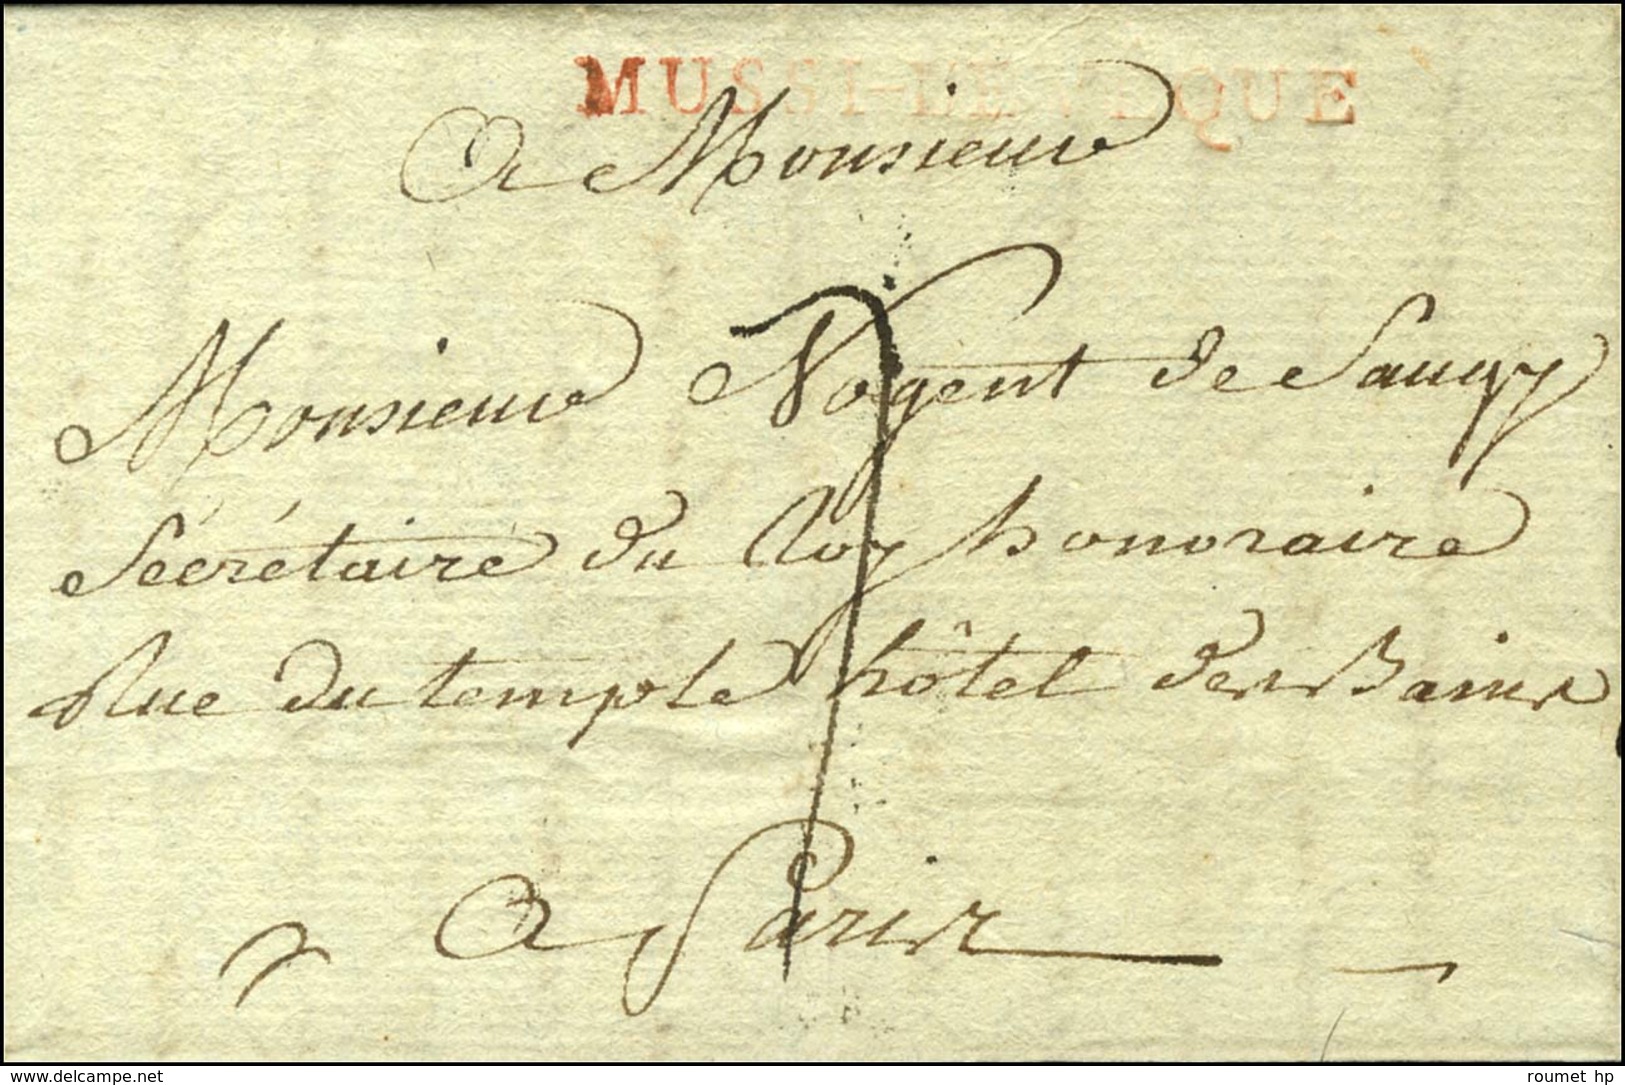 MUSSI-L'EVEQUE
A Monsieur
Monsieur Nogent de Saugy
Sécrétaire du Roy honoraire
Rue du temple hôtel des Bains
A Paris
7
delcampe.net
roumet hp